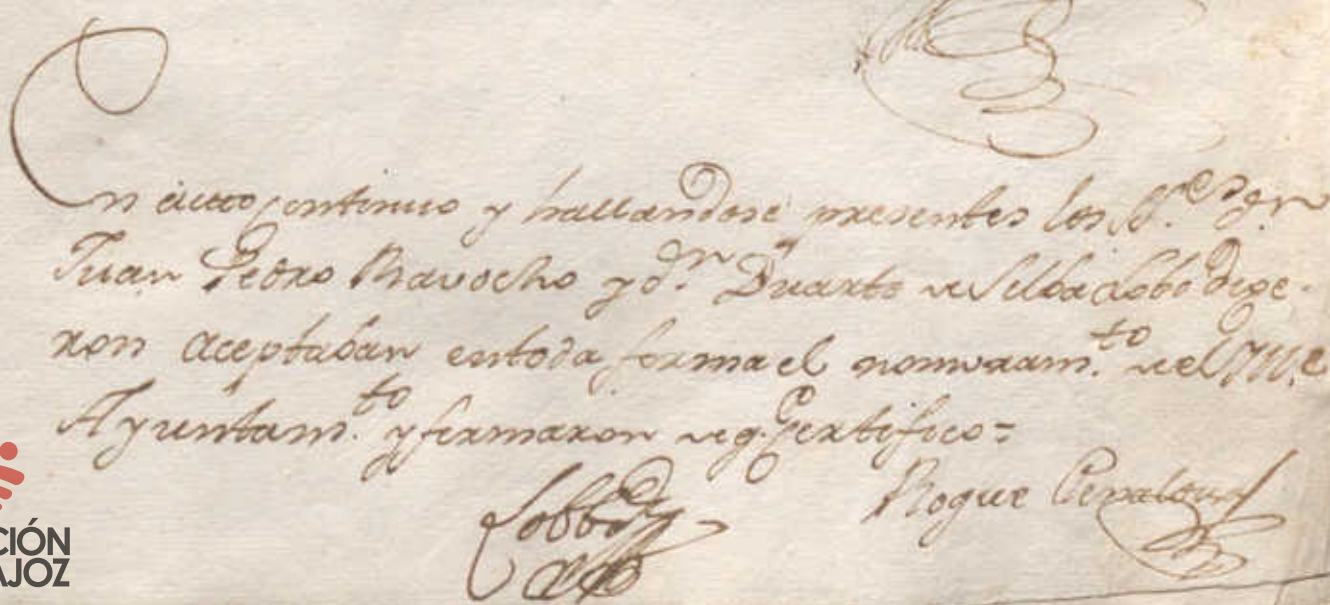 En acto continuo y hallandose presentes los S.res d.n
Juan Pedro Bravocho y d.n Duarte de Silba Lobo dixe-
ron aceptaban en toda forma el nomvram.to del Ill.e
Ayuntam.to y firmaron de q.e Zertifico=
Lobbo
Roque
CIÓN
AJOZ